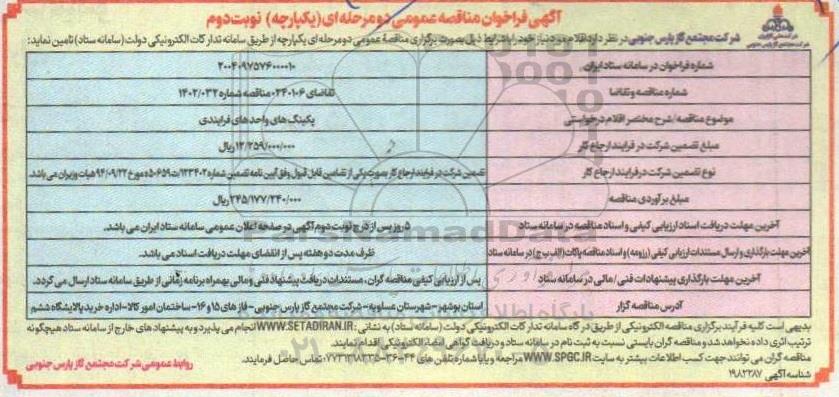 آگهی فراخوان مناقصه عمومی دو مرحله ای (یکپارچه) نوبت دوم
شرکت مجتمع گاز پارس جنوبی در نظر دارد اقلام مورد نیاز خود را با شرایط ذیل بصورت برگزاری مناقصه عمومی دو مرحله ای یکپارچه از طریق سامانه تدارکات الکترونیکی دولت (سامانه ستاد) تامین نماید:
شماره فراخوان در سامانه ستاد ایران ۲۰۰۴۰۹۷۵۷۶۰۰۰۰۱۰
شماره مناقصه و تقاضا تقاضای ۰۲۴۰۱۰۶ مناقصه شماره ۱۴۰۲/۰۳۲
موضوع مناقصه/شرح مختصر اقلام درخواستی پکینگ های واحدهای فرایندی
مبلغ تضمین شرکت در فرایند ارجاع کار ۱۲/۲۵۹/۰۰۰/۰۰۰ ریال
نوع تضمین شرکت در فرایند ارجاع کار تضمین شرکت در فرایند ارجاع کار بصورت یکی از تضامین قابل قبول وفق آیین نامه تضمین شماره ۱۲۳۴۰۲/ت۵۰۶۵۹ه مورخ ۹۴/۰۹/۲۲ هیات وزیران می باشد.
مبلغ برآوردی مناقصه ۲۴۵/۱۷۷/۲۴۰/۰۰۰ ریال
آخرین مهلت دریافت اسناد ارزیابی کیفی و اسناد مناقصه در سامانه ستاد ۵ روز پس از درج نوبت دوم آگهی در صفحه اعلان عمومی سامانه ستاد ایران می باشد.
آخرین مهلت بارگذاری و ارسال مستندات ارزیابی کیفی (رزومه) و اسناد مناقصه پاکات (الف ب ج) در سامانه ستاد ظرف مدت دو هفته پس از انقضای مهلت دریافت اسناد می باشد.
آخرین مهلت بارگذاری پیشنهادات فنی / مالی در سامانه ستاد پس از ارزیابی کیفی مناقصه گران، مستندات دریافت پیشنهاد فنی و مالی بهمراه برنامه زمانی از طریق سامانه ستاد ارسال می گردد.
آدرس مناقصه گزار استان بوشهر - شهرستان عسلویه - شرکت مجتمع گاز پارس جنوبی - فازهای ۱۵ و ۱۶ - ساختمان امور کالا - اداره خرید پالایشگاه ششم
بدیهی است کلیه فرآیند برگزاری مناقصه الکترونیکی از طریق درگاه سامانه تدارکات الکترونیکی دولت (سامانه ستاد) به نشانی: WWW.SETADIRAN.IR انجام می پذیرد و به پیشنهادهای خارج از سامانه ستاد هیچگونه
ترتیب اثری داده نخواهد شد و مناقصه گران بایستی نسبت به ثبت نام در سامانه ستاد و دریافت گواهی امضاء الکترونیکی اقدام نمایند.
مناقصه گران می توانند جهت کسب اطلاعات بیشتر به سایت WWW.SPGC.IR مراجعه و یا با شماره تلفن های تماس حاصل فرمایند.
شناسه آگهی ۱۹۸۲۲۸۷ روابط عمومی شرکت مجتمع گاز پارس جنوبی